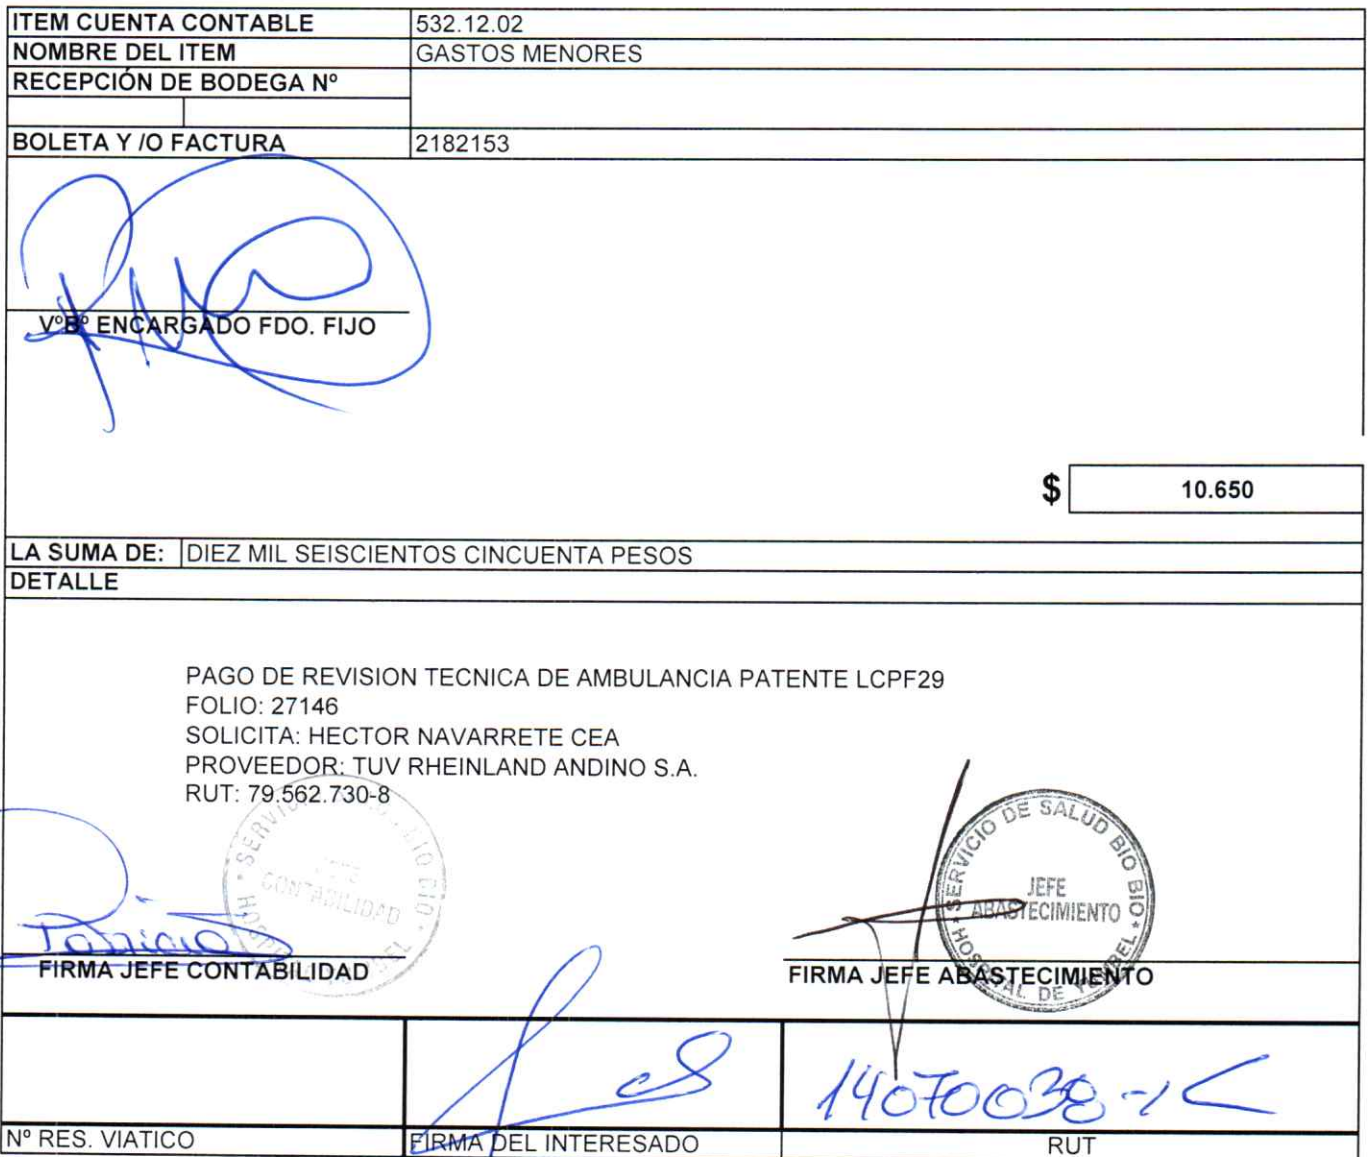 ITEM CUENTA CONTABLE 532.12.02
NOMBRE DEL ITEM GASTOS MENORES
RECEPCIÓN DE BODEGA Nº
BOLETA Y /O FACTURA 2182153
VºBº ENCARGADO FDO. FIJO
$ 10.650
LA SUMA DE: DIEZ MIL SEISCIENTOS CINCUENTA PESOS
DETALLE
PAGO DE REVISION TECNICA DE AMBULANCIA PATENTE LCPF29
FOLIO: 27146
SOLICITA: HECTOR NAVARRETE CEA
PROVEEDOR: TUV RHEINLAND ANDINO S.A.
RUT: 79.562.730-8
CONTABILIDAD
SERVICIO DE SALUD BIO BIO
JEFE
ABASTECIMIENTO
HOSPITAL DE YUMBEL
FIRMA JEFE CONTABILIDAD
FIRMA JEFE ABASTECIMIENTO
14070038-K
Nº RES. VIATICO
FIRMA DEL INTERESADO
RUT